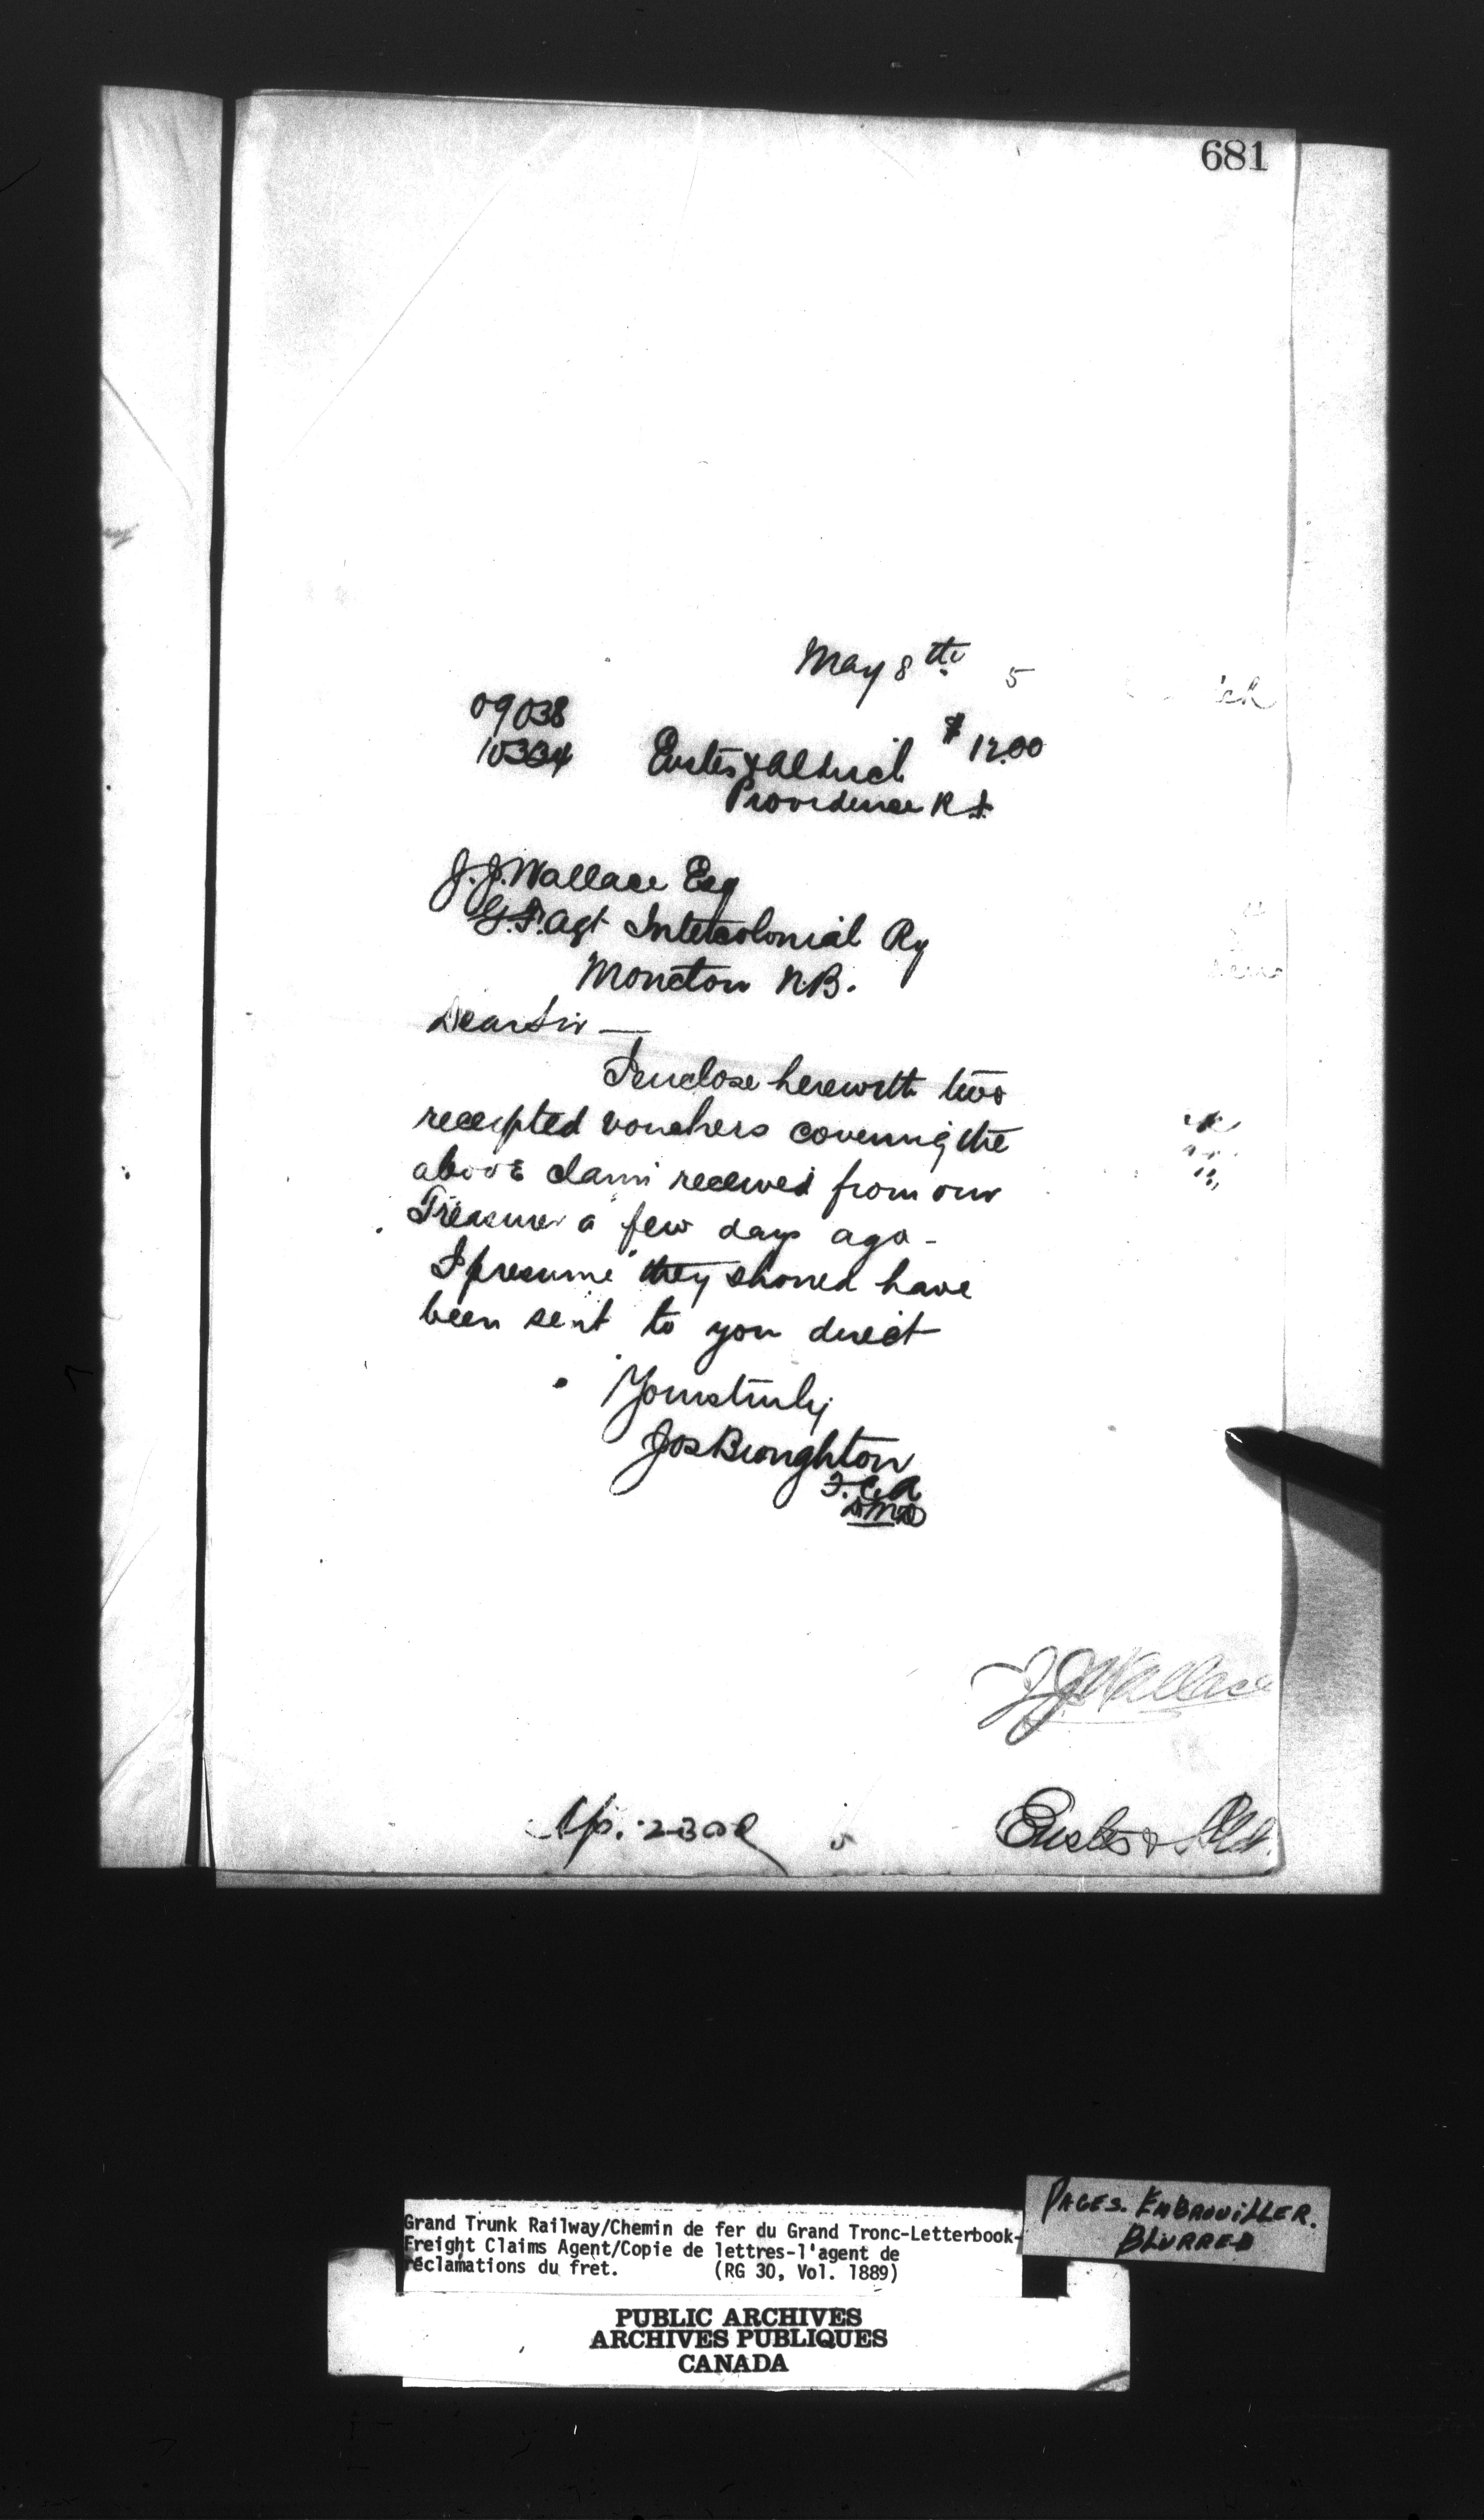 681
May 8th 5
09038
10334 Eustes & Aldrich $12.00
Providence R.I.
J.J. Wallace Esq
G.F. Agt Intercolonial Ry
Moncton N.B.
Dear Sir —
I enclose herewith two
receipted vouchers covering the
above claim received from our
Treasurer a few days ago -
I presume they should have
been sent to you direct
Yours truly
Jos Broughton
F.C.A.
J J Wallace
Eustes & Ald.
PAGES. EMBROUILLER.
BLURRED
Grand Trunk Railway/Chemin de fer du Grand Tronc-Letterbook-
Freight Claims Agent/Copie de lettres-l'agent de
réclamations du fret. (RG 30, Vol. 1889)
PUBLIC ARCHIVES
ARCHIVES PUBLIQUES
CANADA